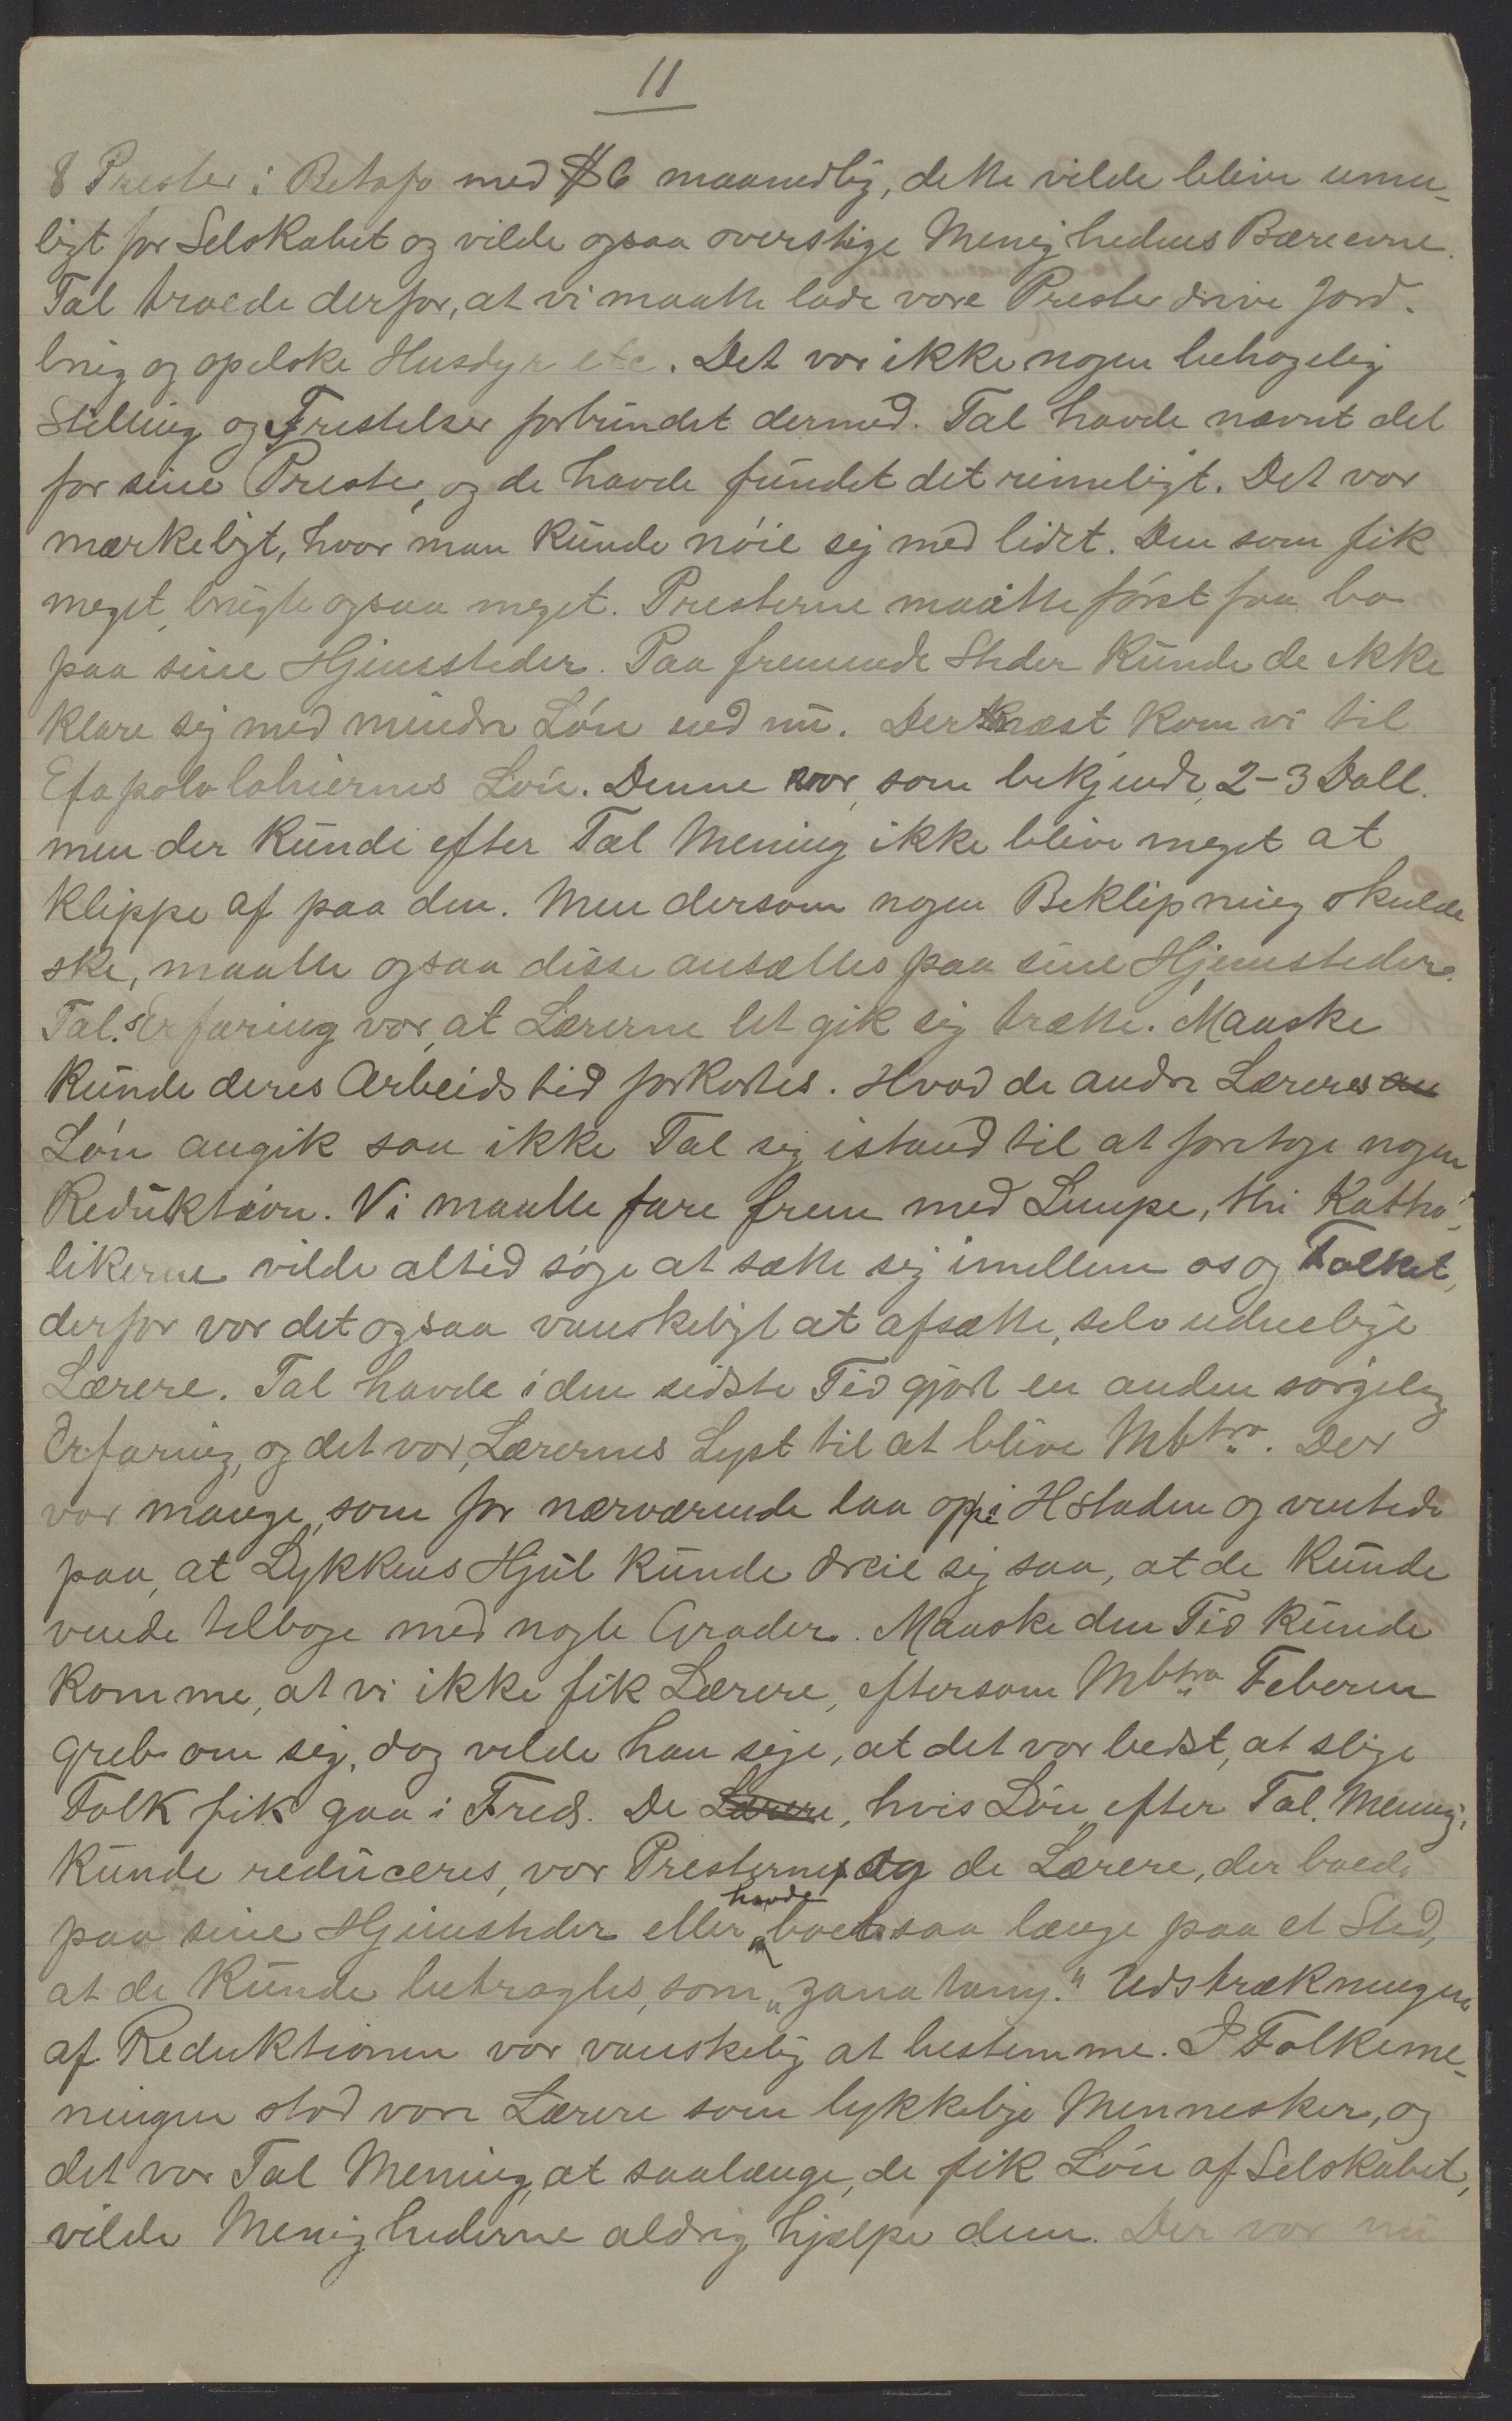 11
8 Prester i Betafo med $6 maanedlig, dette vilde blive umu-
ligt for Selskabet og vilde ogsaa overstige Menighedens Bæreevne.
Tal troede derfor, at vi maatte lade vore Prester drive Jord-
brug og opelske Husdyr etc. Det var ikke nogen behagelig
Stilling og Fristelser forbundet dermed. Tal havde nævnt det
for sine Prester, og de havde fundet det rimeligt. Det var
mærkeligt, hvor man kunde nöie sig med lidet. Den som fik
meget, brugte ogsaa meget. Presterne maatte först faa bo
paa sine Hjemsteder. Paa fremmede Steder kunde de ikke
klare sig med mindre Lön end nu. Dernæst kom vi til
Efapololahiernes Lön. Denne var, som bekjendt, 2-3 Doll.
men der kunde efter Tal Mening ikke blive meget at
klippe af paa den. Men dersom nogen Beklipning skulde
ske, maatte ogsaa disse ansættes paa sine Hjemsteder.
Tal.s Erfaring var, at Lærerne let gik sig trætte. Maaske
kunde deres Arbeidstid forkortes. Hvad de andre Læreres an
Lön angik saa ikke Tal sig istand til at foretage nogen
Reduktion. Vi maatte fare frem med Lempe, thi Katho-
likerne vilde altid söge at sætte sig imellem os og Folket,
derfor var det ogsaa vanskeligt at afsætte, selv uduelige
Lærere. Tal havde i den sidste Tid gjort en anden sörgelig
Erfaring, og det var, Lærernes Lyst til at blive Mbtra. Der
var mange, som for nærværende laa oppi Hstaden og ventede
paa, at Lykkens Hjul kunde dreie sig saa, at de kunde
vende tilbage med nogle Grader. Maaske den Tid kunde
komme, at vi ikke fik Lærere, eftersom Mbtra Feberen
greb om sig, dog vilde han sige, at det var bedst, at slige
Folk fik gaa i Fred. De Lærere, hvis Lön efter Tal. Mening,
kunde reduceres, var Presternes og de Lærere, der boede
paa sine Hjemsteder eller havde boet saa længe paa et Sted,
at de kunde betragtes, som „zana tany." Udstrækningen
af Reduktionen var vanskelig at bestemme. I Folkeme-
ningen stod vore Lærere som lykkelige Mennesker, og
det var Tal Mening, at saalænge, de fik Lön af Selskabet,
vilde Menighederne aldrig hjælpe dem. Der var nu